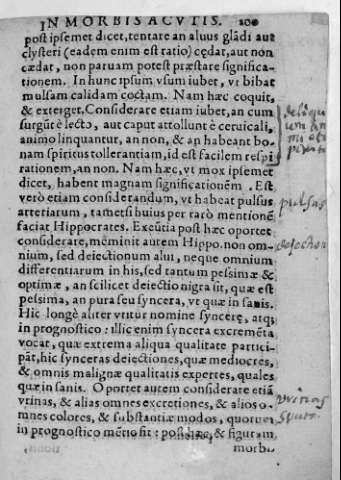 IN MORBIS ACVTIS.
post ipsemet dicet, tentare an aluus glãdi aut
clysteri (eadem enim est ratio) cędat, aut non
cædat, non paruam potest præstare significa-
tionem. In hunc ipsum vsum iubet, vt bibat
mulsam calidam coctam. Nam hæc coquit,
& exterget. Considerare etiam iubet, an cum
surgũt è lecto, aut caput attollunt è ceruicali,
animo linquantur, an non, & an habeant bo-
nam spiritus tollerantiam, id est facilem respi
rationem, an non. Nam hæc, vt mox ipsemet
dicet, habent magnam significationẽm. Est
verò etiam considerandum, vt habeat pulsus
arteriarum, tametsi huius per rarò mentionẽ
faciat Hippocrates. Exeũtia post hæc oportet
considerare, mẽminit autem Hippo. non om-
nium, sed deiectionum alui, neque omnium
differentiarum in his, sed tantum pessimæ &
optimæ, an scilicet deiectio nigra sit, quæ est
pessima, an pura seu syncera, vt quæ in sanis.
Hic longè aliter vtitur nomine syncerę, atqɜ
in prognostico: illic enim syncera excremẽta
vocat, quæ extrema aliqua qualitate partici-
pãt, hic synceras deiectiones, quæ mediocres,
& omnis malignæ qualitatis expertes, quales
quæ in sanis. Oportet autem considerare etiã
vrinas, & alias omnes excretiones, & alios o-
mnes colores, & substantiæ modos, quorum
in prognostico mẽtio fit: post hæc, & figuram
morbi
pulsus
dejection
vrinas